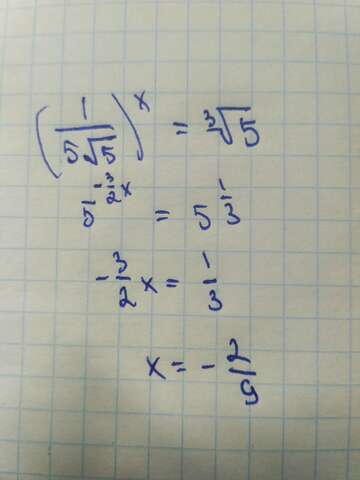 (1/(5√5))^x = ∛5
5^(-3/2 x) = 5^(1/3)
-3/2 x = 1/3
x = -2/9